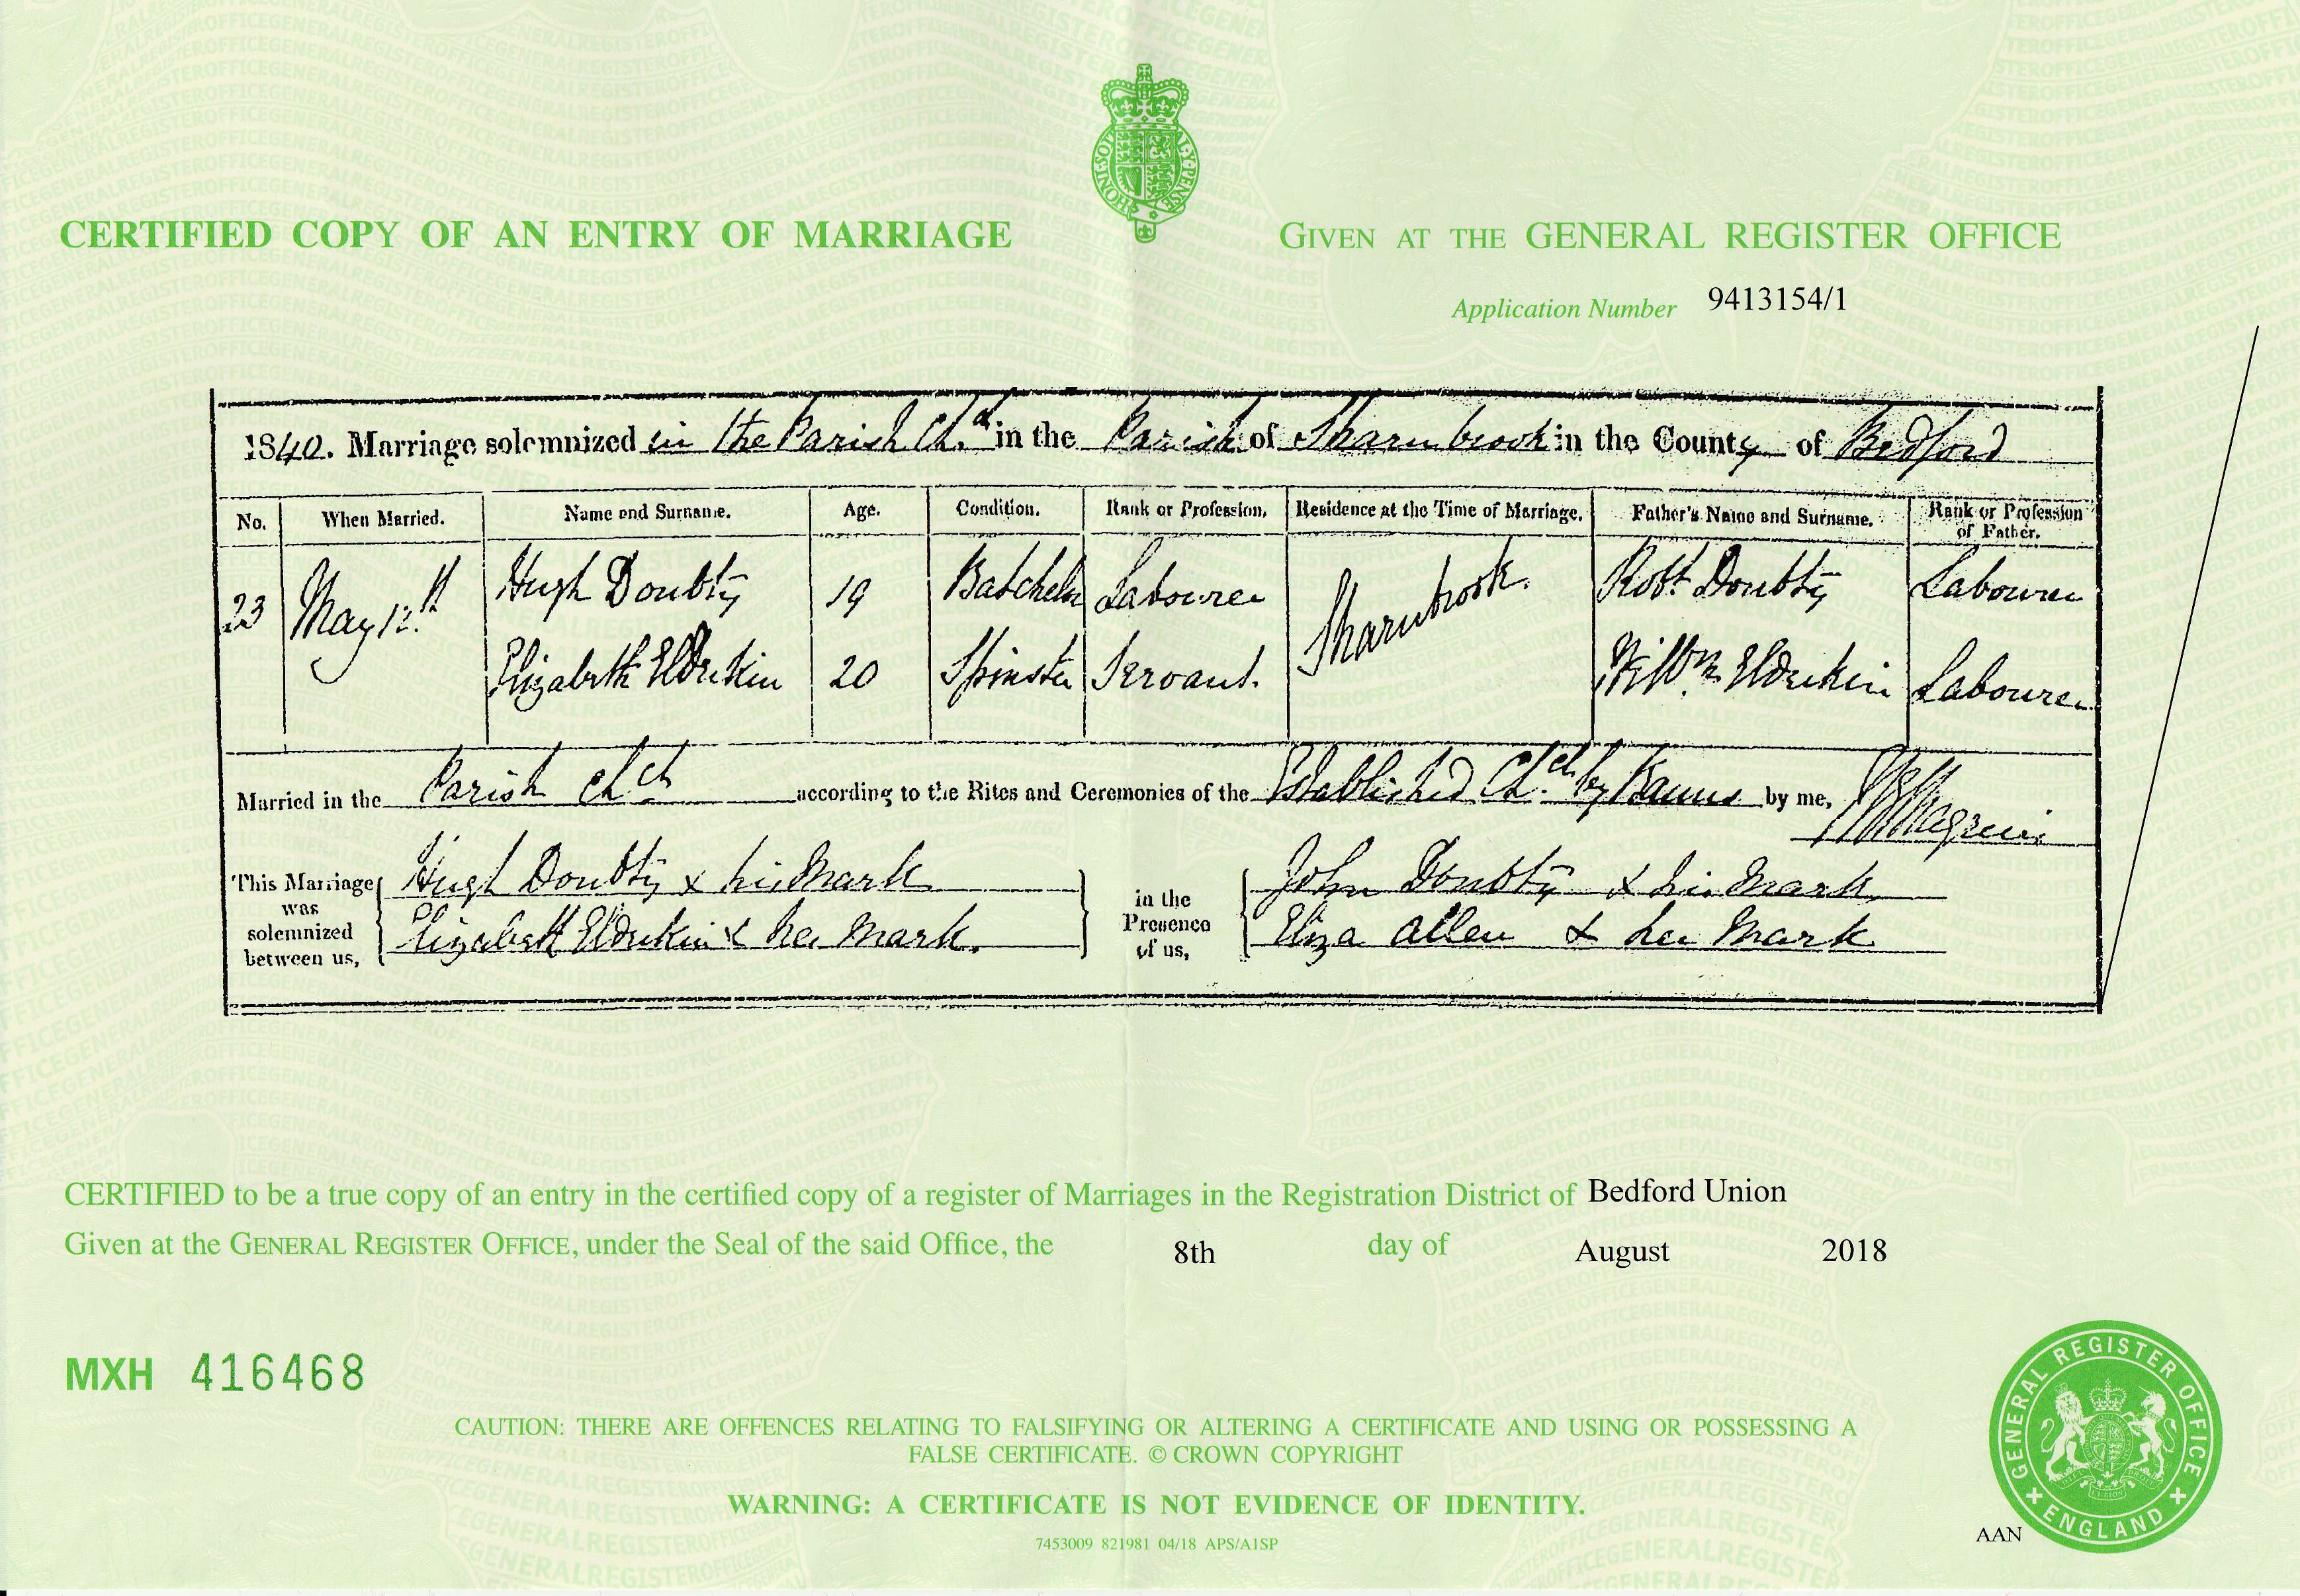 HONI·SOIT AL·Y·PENSE
CERTIFIED COPY OF AN ENTRY OF MARRIAGE
GIVEN AT THE GENERAL REGISTER OFFICE
Application Number 9413154/1
1840. Marriage solemnized in the Parish Ch.ch in the Parish of Sharnbrook in the County of Bedford
No. When Married. Name and Surname. Age. Condition. Rank or Profession. Residence at the Time of Marriage. Father's Name and Surname. Rank or Profession of Father.
23 May 12.th Hugh Doubty 19 Batchelor Labourer Sharnbrook. Robt. Doubty Labourer
Elizabeth Eldrekin 20 Spinster Servant. Willm. Eldrekin Labourer
Married in the Parish Chch according to the Rites and Ceremonies of the Established Ch.ch by Banns by me,
This Marriage was solemnized between us, Hugh Doubty x his Mark
Elizabeth Eldrekin x her Mark.
in the Presence of us, John Doubty x his Mark
Eliza Allen x her Mark
CERTIFIED to be a true copy of an entry in the certified copy of a register of Marriages in the Registration District of Bedford Union
Given at the GENERAL REGISTER OFFICE, under the Seal of the said Office, the 8th day of August 2018
MXH 416468
CAUTION: THERE ARE OFFENCES RELATING TO FALSIFYING OR ALTERING A CERTIFICATE AND USING OR POSSESSING A
FALSE CERTIFICATE. © CROWN COPYRIGHT
WARNING: A CERTIFICATE IS NOT EVIDENCE OF IDENTITY.
7453009 821981 04/18 APS/A1SP
AAN
GENERAL REGISTER OFFICE
ENGLAND